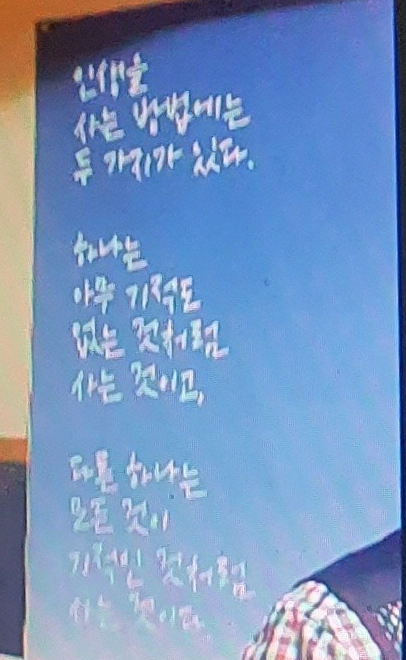 인생을
사는 방법에는
두 가지가 있다.
하나는
아무 기적도
없는 것처럼
사는 것이고,
다른 하나는
모든 것이
기적인 것처럼
사는 것이다.